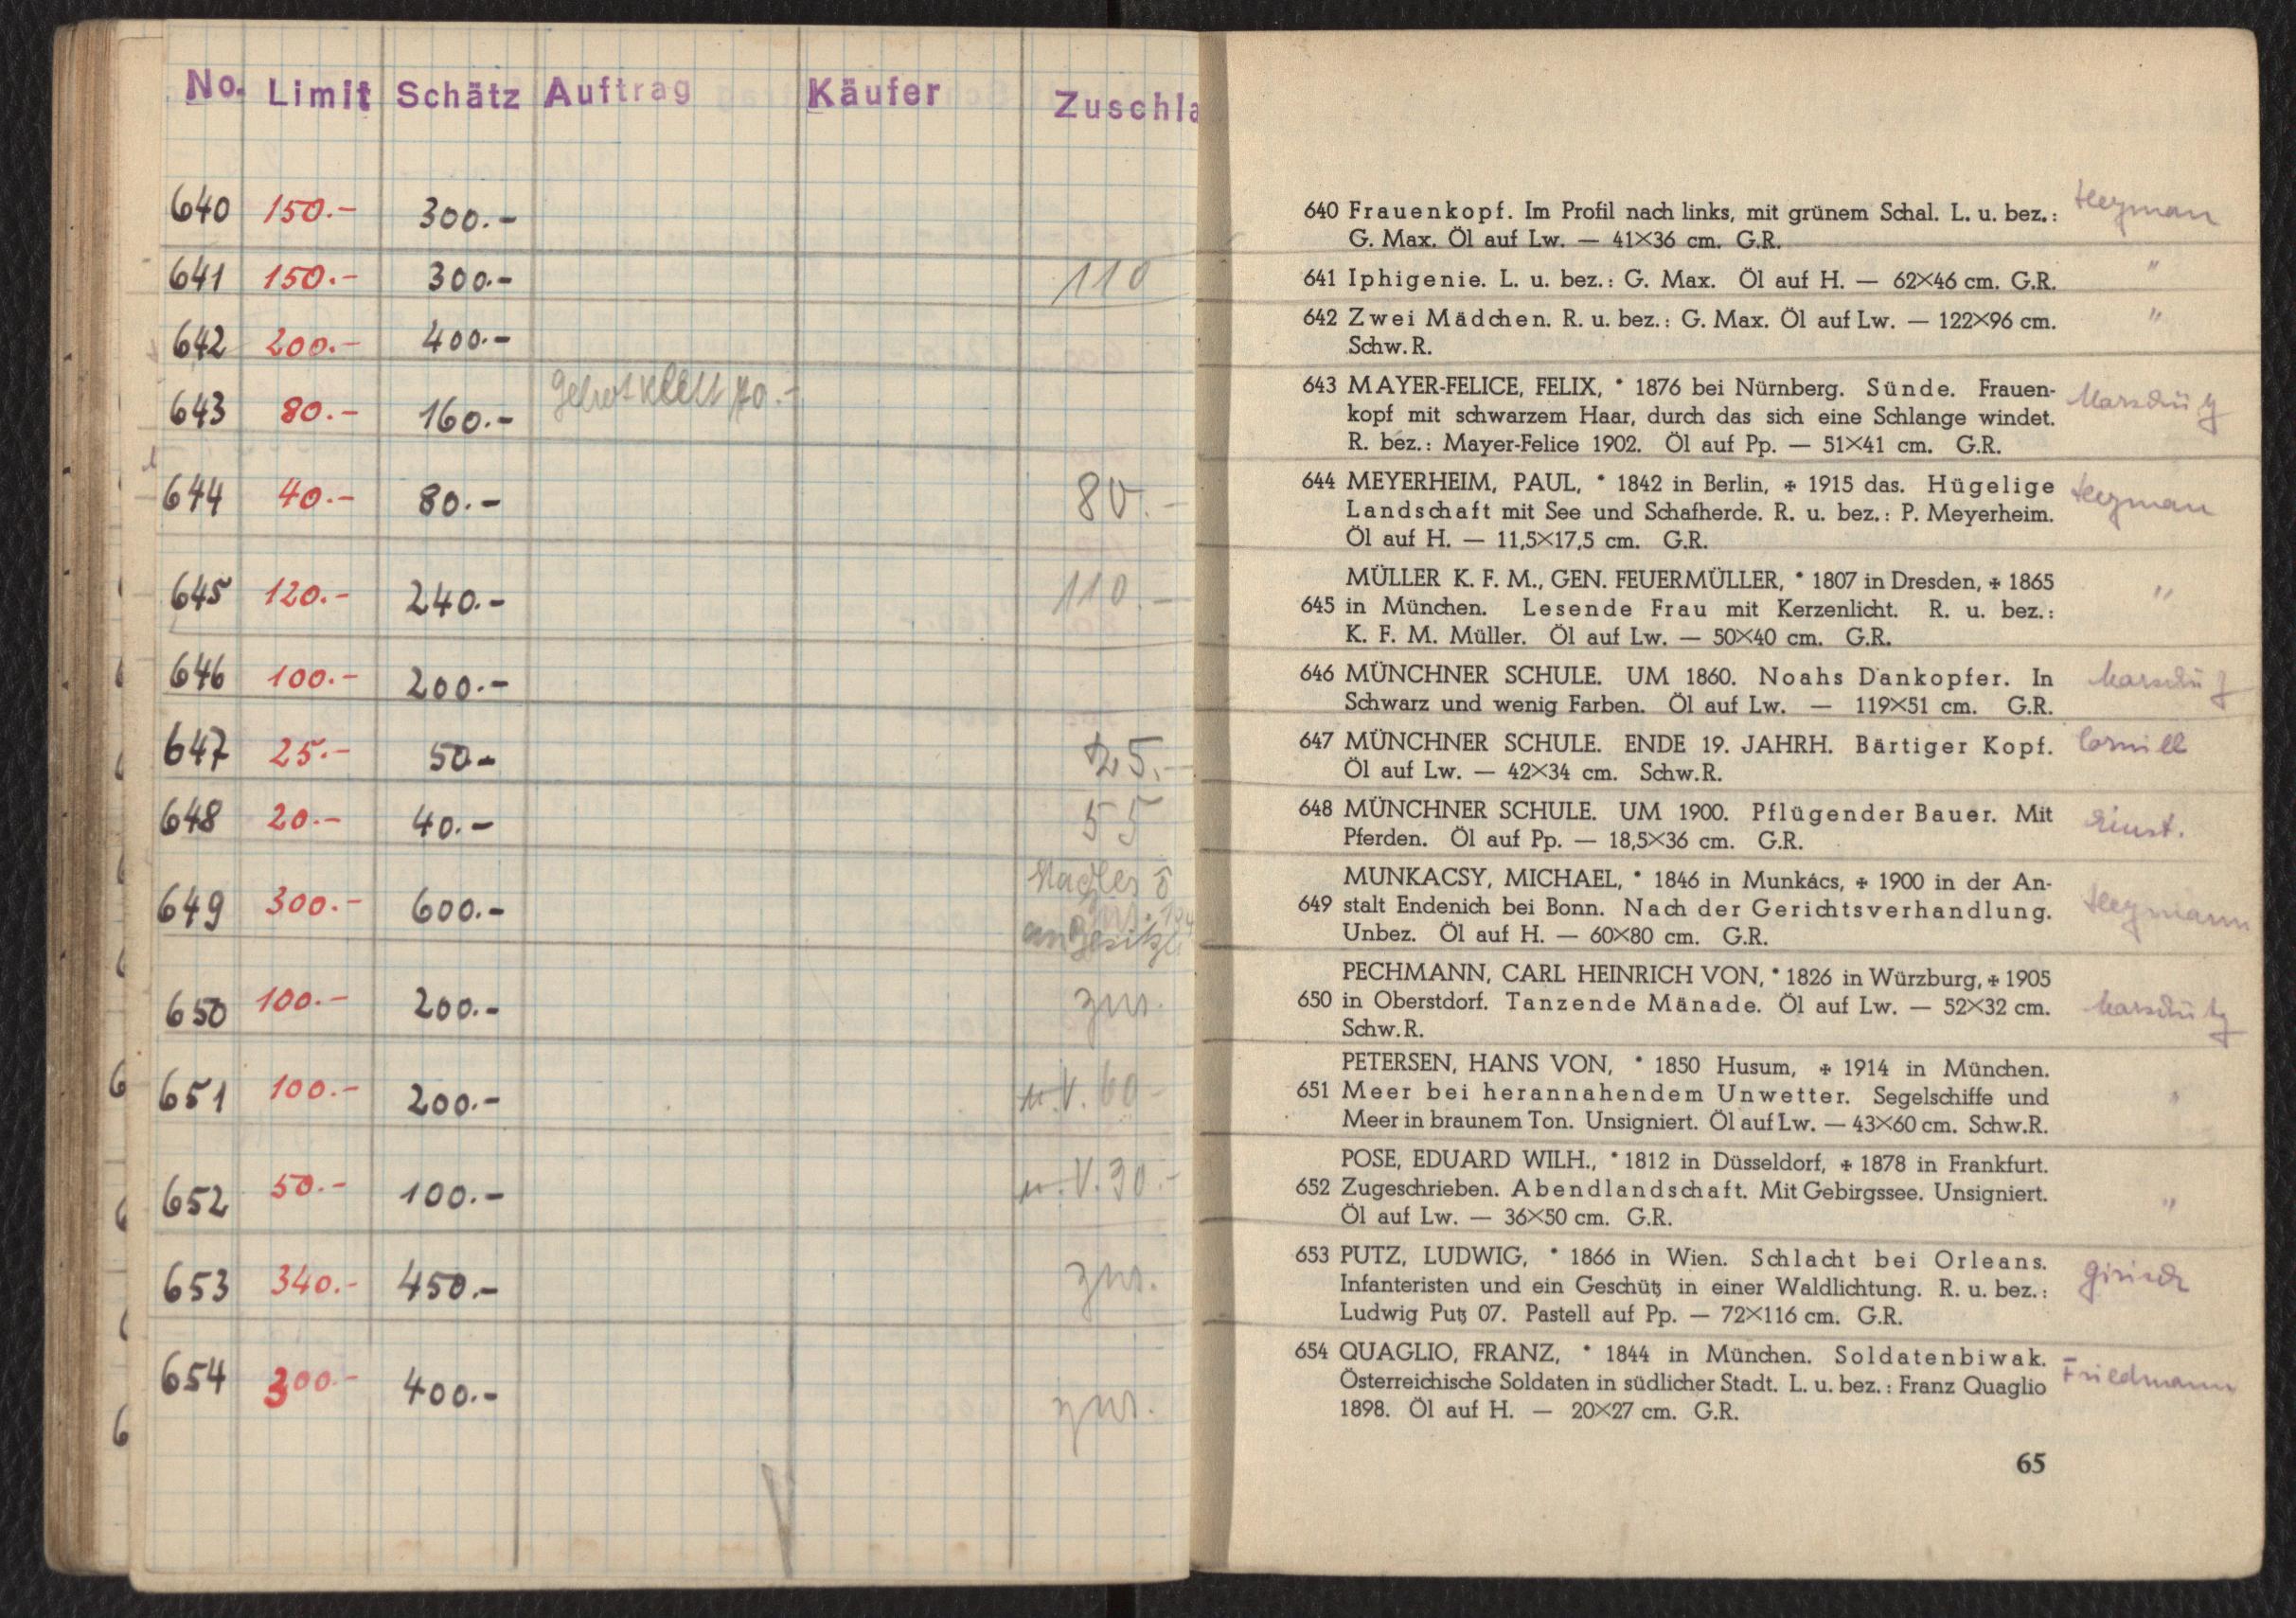 No. Limit Schätz Auftrag Käufer Zuschla
640 150.- 300.-
641 150.- 300.- 110
642 200.- 400.-
643 80.- 160.-
644 40.- 80.- 80.-
645 120.- 240.- 110.-
646 100.- 200.-
647 25.- 50.- 25.-
648 20.- 40.- 55
649 300.- 600.-
650 100.- 200.- zur.
651 100.- 200.- u.V. 60-
652 50.- 100.- u.V. 30.-
653 340.- 450.- zur.
654 300.- 400.- zur.
640 Frauenkopf. Im Profil nach links, mit grünem Schal. L. u. bez.: Heyman
G. Max. Öl auf Lw. — 41×36 cm. G.R.
641 Iphigenie. L. u. bez.: G. Max. Öl auf H. — 62×46 cm. G.R. "
642 Zwei Mädchen. R. u. bez.: G. Max. Öl auf Lw. — 122×96 cm. "
Schw. R.
643 MAYER-FELICE, FELIX, * 1876 bei Nürnberg. Sünde. Frauen- Marschütz
kopf mit schwarzem Haar, durch das sich eine Schlange windet.
R. bez.: Mayer-Felice 1902. Öl auf Pp. — 51×41 cm. G.R.
644 MEYERHEIM, PAUL, * 1842 in Berlin, ✠ 1915 das. Hügelige Heyman
Landschaft mit See und Schafherde. R. u. bez.: P. Meyerheim.
Öl auf H. — 11,5×17,5 cm. G.R.
MÜLLER K. F. M., GEN. FEUERMÜLLER, * 1807 in Dresden, ✠ 1865
645 in München. Lesende Frau mit Kerzenlicht. R. u. bez.: "
K. F. M. Müller. Öl auf Lw. — 50×40 cm. G.R.
646 MÜNCHNER SCHULE. UM 1860. Noahs Dankopfer. In Marschütz
Schwarz und wenig Farben. Öl auf Lw. — 119×51 cm. G.R.
647 MÜNCHNER SCHULE. ENDE 19. JAHRH. Bärtiger Kopf. Cornill
Öl auf Lw. — 42×34 cm. Schw.R.
648 MÜNCHNER SCHULE. UM 1900. Pflügender Bauer. Mit
Pferden. Öl auf Pp. — 18,5×36 cm. G.R.
MUNKACSY, MICHAEL, * 1846 in Munkács, ✠ 1900 in der An-
649 stalt Endenich bei Bonn. Nach der Gerichtsverhandlung. Heymann
Unbez. Öl auf H. — 60×80 cm. G.R.
PECHMANN, CARL HEINRICH VON, * 1826 in Würzburg, ✠ 1905
650 in Oberstdorf. Tanzende Mänade. Öl auf Lw. — 52×32 cm. Marschütz
Schw. R.
PETERSEN, HANS VON, * 1850 Husum, ✠ 1914 in München.
651 Meer bei herannahendem Unwetter. Segelschiffe und "
Meer in braunem Ton. Unsigniert. Öl auf Lw. — 43×60 cm. Schw.R.
POSE, EDUARD WILH., * 1812 in Düsseldorf, ✠ 1878 in Frankfurt.
652 Zugeschrieben. Abendlandschaft. Mit Gebirgssee. Unsigniert. "
Öl auf Lw. — 36×50 cm. G.R.
653 PUTZ, LUDWIG, * 1866 in Wien. Schlacht bei Orleans.
Infanteristen und ein Geschütz in einer Waldlichtung. R. u. bez.:
Ludwig Putz 07. Pastell auf Pp. — 72×116 cm. G.R.
654 QUAGLIO, FRANZ, * 1844 in München. Soldatenbiwak. Friedmann
Österreichische Soldaten in südlicher Stadt. L. u. bez.: Franz Quaglio
1898. Öl auf H. — 20×27 cm. G.R.
65